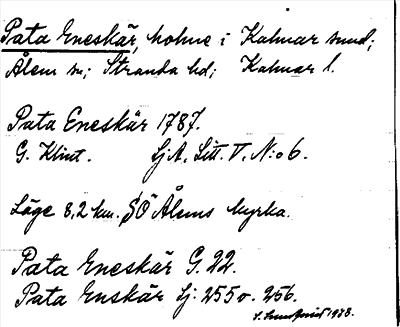 Pata Eneskär, holme i Kalmar sund;
Ålem sn; Stranda hd; Kalmar l.
Pata Eneskär 1787.
G. Klint. Sj A. Litt. V, N:o 6.
Läge 8,2 km. SÖ Ålems kyrka.
Pata Eneskär G. 22.
Pata Enskär Sj: 255 o. 256.
1938.